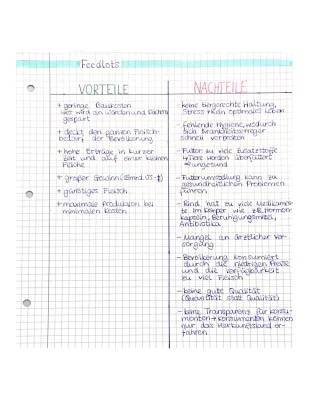 Feedlots
VORTEILE
+ geringe Baukosten
wird an Wänden und Dächern
gespart
+ deckt den ganzen Fleisch-
bedarf der Bevölkerung
+ hohe Erträge in kurzer
Zeit und auf einer kleinen
Fläche
+ großer Gewinn
+ günstiges Fleisch
+ maximale Produktion bei
minimalen Kosten
NACHTEILE
- keine tiergerechte Haltung,
Stress + kein optimales Leben
- fehlende Hygiene, wodurch
sich Krankheitserreger
schnell verbreiten
- Futter zu viele Zusatzstoffe
↳ Tiere werden überfüttert
→ ungesund
- Futterumstellung kann zu
gesundheitlichen Problemen
führen
- Rind hat zu viele Medikamen-
te im Körper wie z.B. Hormon-
kapseln, Beruhigungsmittel,
Antibiotika
- Mangel an ärztlicher Ver-
sorgung
- Bevölkerung konsumiert
durch die niedrigen Preise
und die Verfügbarkeit
zu viel Fleisch
- keine gute Qualität
(Quantität statt Qualität)
- keine Transparenz für Konsu-
menten → Konsumenten können
nur das Herkunftsland er-
fahren